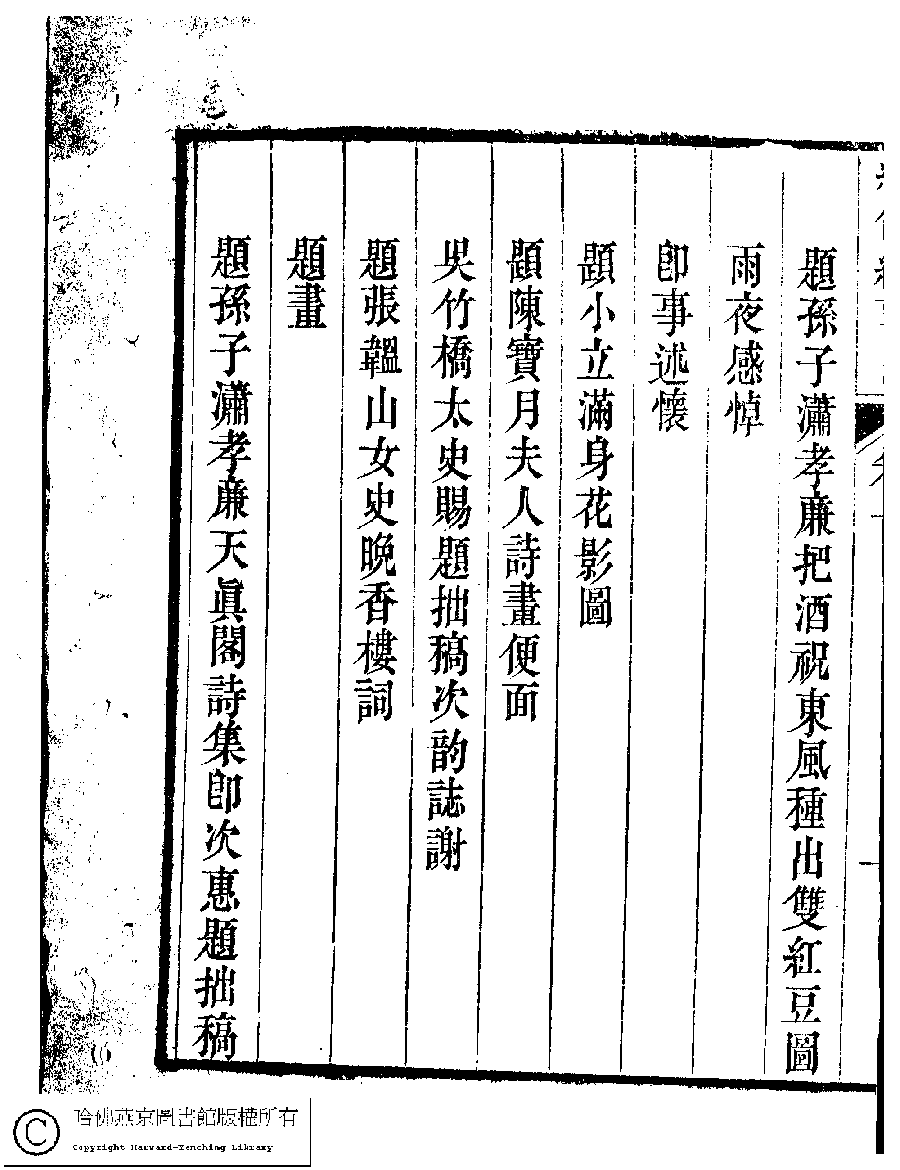 題孫子瀟孝廉把酒祝東風種出雙紅豆圖
雨夜感悼
卽事述懷
題小立滿身花影圖
題陳寶月夫人詩畫便面
吳竹橋太史賜題拙稿次韵誌謝
題張韞山女史晚香樓詞
題畫
題孫子瀟孝廉天眞閣詩集卽次惠題拙稿
哈佛燕京圖書館版權所有
Copyright Harvard-Yenching Library